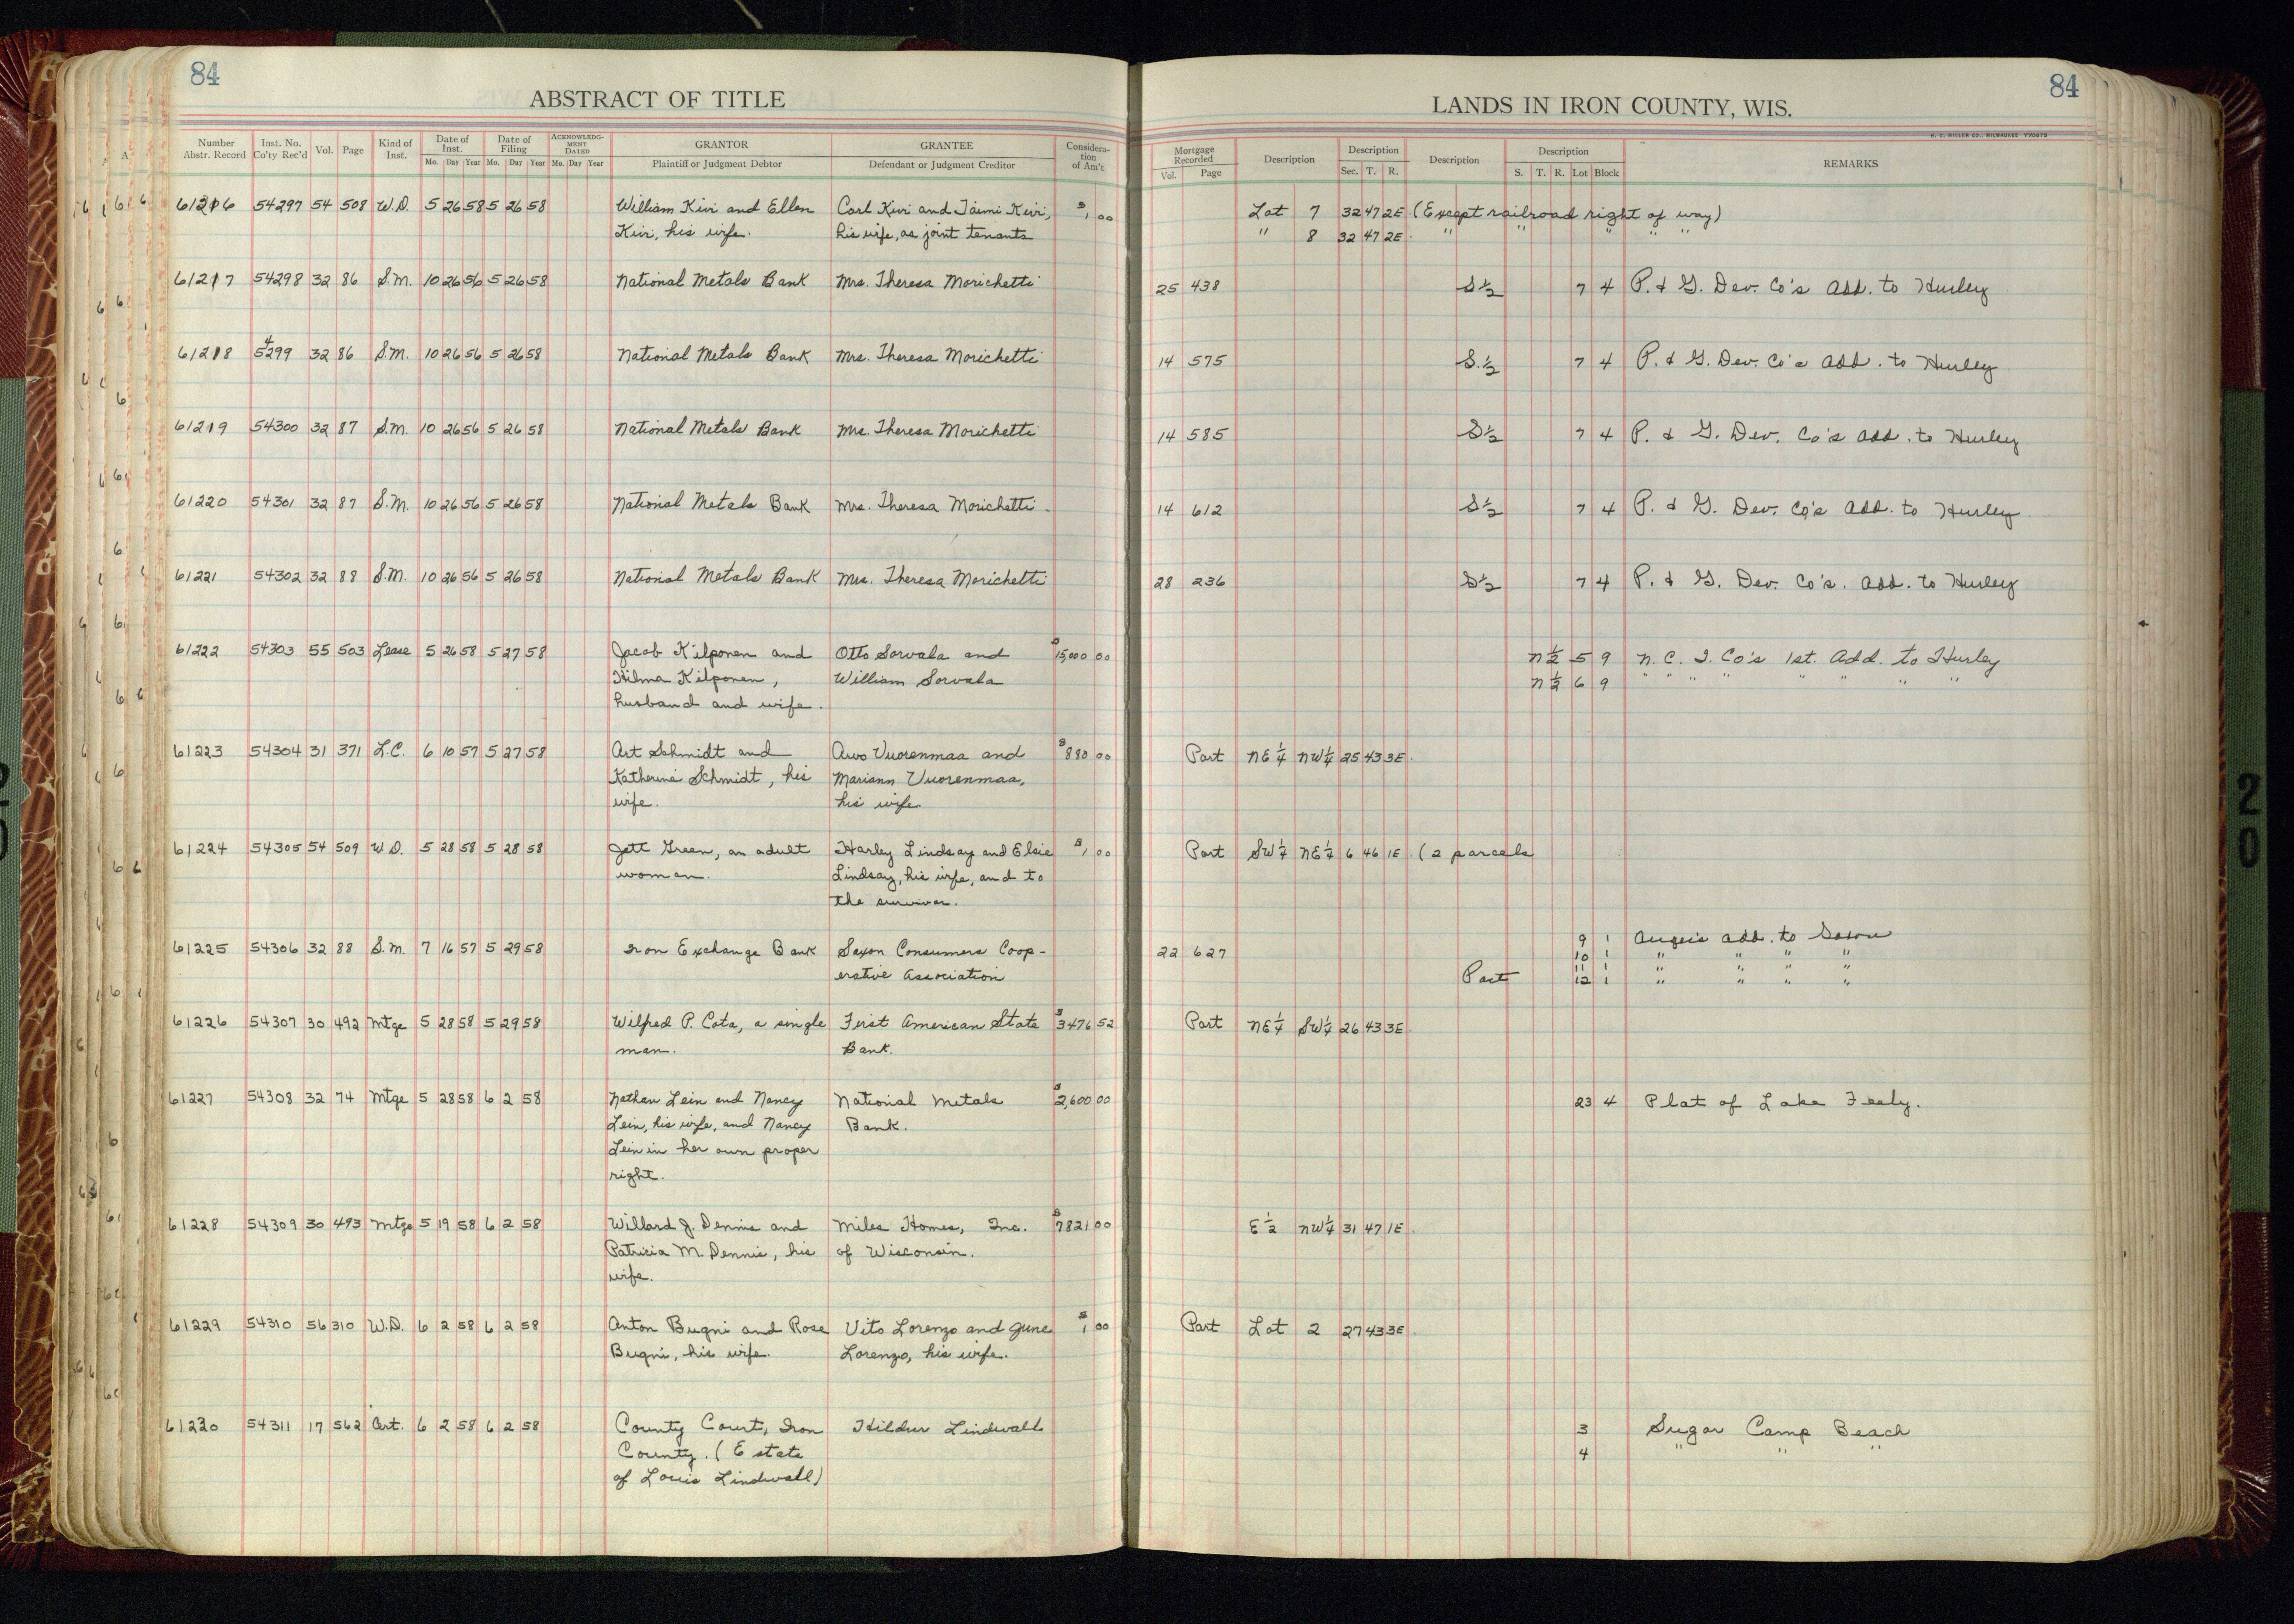 84
ABSTRACT OF TITLE
Number Abstr. Record | Inst. No. Co'ty Rec'd | Vol. | Page | Kind of Inst. | Date of Inst. Mo. Day Year | Date of Filing Mo. Day Year | ACKNOWLEDGMENT DATED Mo. Day Year | GRANTOR Plaintiff or Judgment Debtor | GRANTEE Defendant or Judgment Creditor | Consideration of Am't
61216 54297 54 508 W.D. 5 26 58 5 26 58 William Kivi and Ellen Carl Kivi and Taimi Kivi, $1 00
Kivi, his wife. his wife, as joint tenants
61217 54298 32 86 S.M. 10 26 56 5 26 58 National Metals Bank Mrs. Theresa Morichetti
61218 54299 32 86 S.M. 10 26 56 5 26 58 National Metals Bank Mrs. Theresa Morichetti
61219 54300 32 87 S.M. 10 26 56 5 26 58 National Metals Bank Mrs. Theresa Morichetti
61220 54301 32 87 S.M. 10 26 56 5 26 58 National Metals Bank Mrs. Theresa Morichetti.
61221 54302 32 88 S.M. 10 26 56 5 26 58 National Metals Bank Mrs. Theresa Morichetti
61222 54303 55 503 Lease 5 26 58 5 27 58 Jacob Kilponen and Otto Sorvala and $15,000 00
Hilma Kilponen, William Sorvala
husband and wife.
61223 54304 31 371 L.C. 6 10 57 5 27 58 Art Schmidt and Arvo Vuorenmaa and $880 00
Katherine Schmidt, his Mariann Vuorenmaa,
wife. his wife.
61224 54305 54 509 W.D. 5 28 58 5 28 58 Jett Green, an adult Harley Lindsay and Elsie $1 00
woman. Lindsay, his wife, and to
the survivor.
61225 54306 32 88 S.M. 7 16 57 5 29 58 Iron Exchange Bank Saxon Consumers Coop-
erative Association
61226 54307 30 492 Mtge 5 28 58 5 29 58 Wilfred P. Cota, a single First American State $3476 52
man. Bank.
61227 54308 32 74 Mtge 5 28 58 6 2 58 Nathan Lein and Nancy National Metals $2,600 00
Lein, his wife, and Nancy Bank.
Lein in her own proper
right.
61228 54309 30 493 Mtge 5 19 58 6 2 58 Willard J. Dennis and Miles Homes, Inc. $7821 00
Patricia M. Dennis, his of Wisconsin.
wife.
61229 54310 56 310 W.D. 6 2 58 6 2 58 Anton Bugni and Rose Vito Lorenzo and June $1 00
Bugni, his wife. Lorenzo, his wife.
61230 54311 17 562 Cert. 6 2 58 6 2 58 County Court, Iron Hildur Lindwall
County. (Estate
of Louis Lindwall)
84
LANDS IN IRON COUNTY, WIS.
H. C. MILLER CO., MILWAUKEE
Mortgage Recorded Vol. Page | Description | Description Sec. T. R. | Description | Description S. T. R. Lot Block | REMARKS
Lot 7 32 47 2E. (Except railroad right of way)
" 8 32 47 2E. " " " " "
25 438 S½ 7 4 P. & G. Dev. Co's Add. to Hurley
14 575 S.½ 7 4 P. & G. Dev. Co's Add. to Hurley
14 585 S½ 7 4 P. & G. Dev. Co's Add. to Hurley
14 612 S½ 7 4 P. & G. Dev. Co's Add. to Hurley
28 236 S½ 7 4 P. & G. Dev. Co's. Add. to Hurley
N½ 5 9 N. C. I. Co's 1st. Add. to Hurley
N½ 6 9 " " " " " " " "
Part NE¼ NW¼ 25 43 3E.
Part SW¼ NE¼ 6 46 1E. (2 parcels
22 627 9 1 Add. to Saxon
10 1 " " " "
11 1 " " " "
Part 12 1 " " " "
Part NE¼ SW¼ 26 43 3E.
23 4 Plat of Lake Feely.
E½ NW¼ 31 47 1E.
Part Lot 2 27 43 3E.
3 Sugar Camp Beach
4 " " "
20